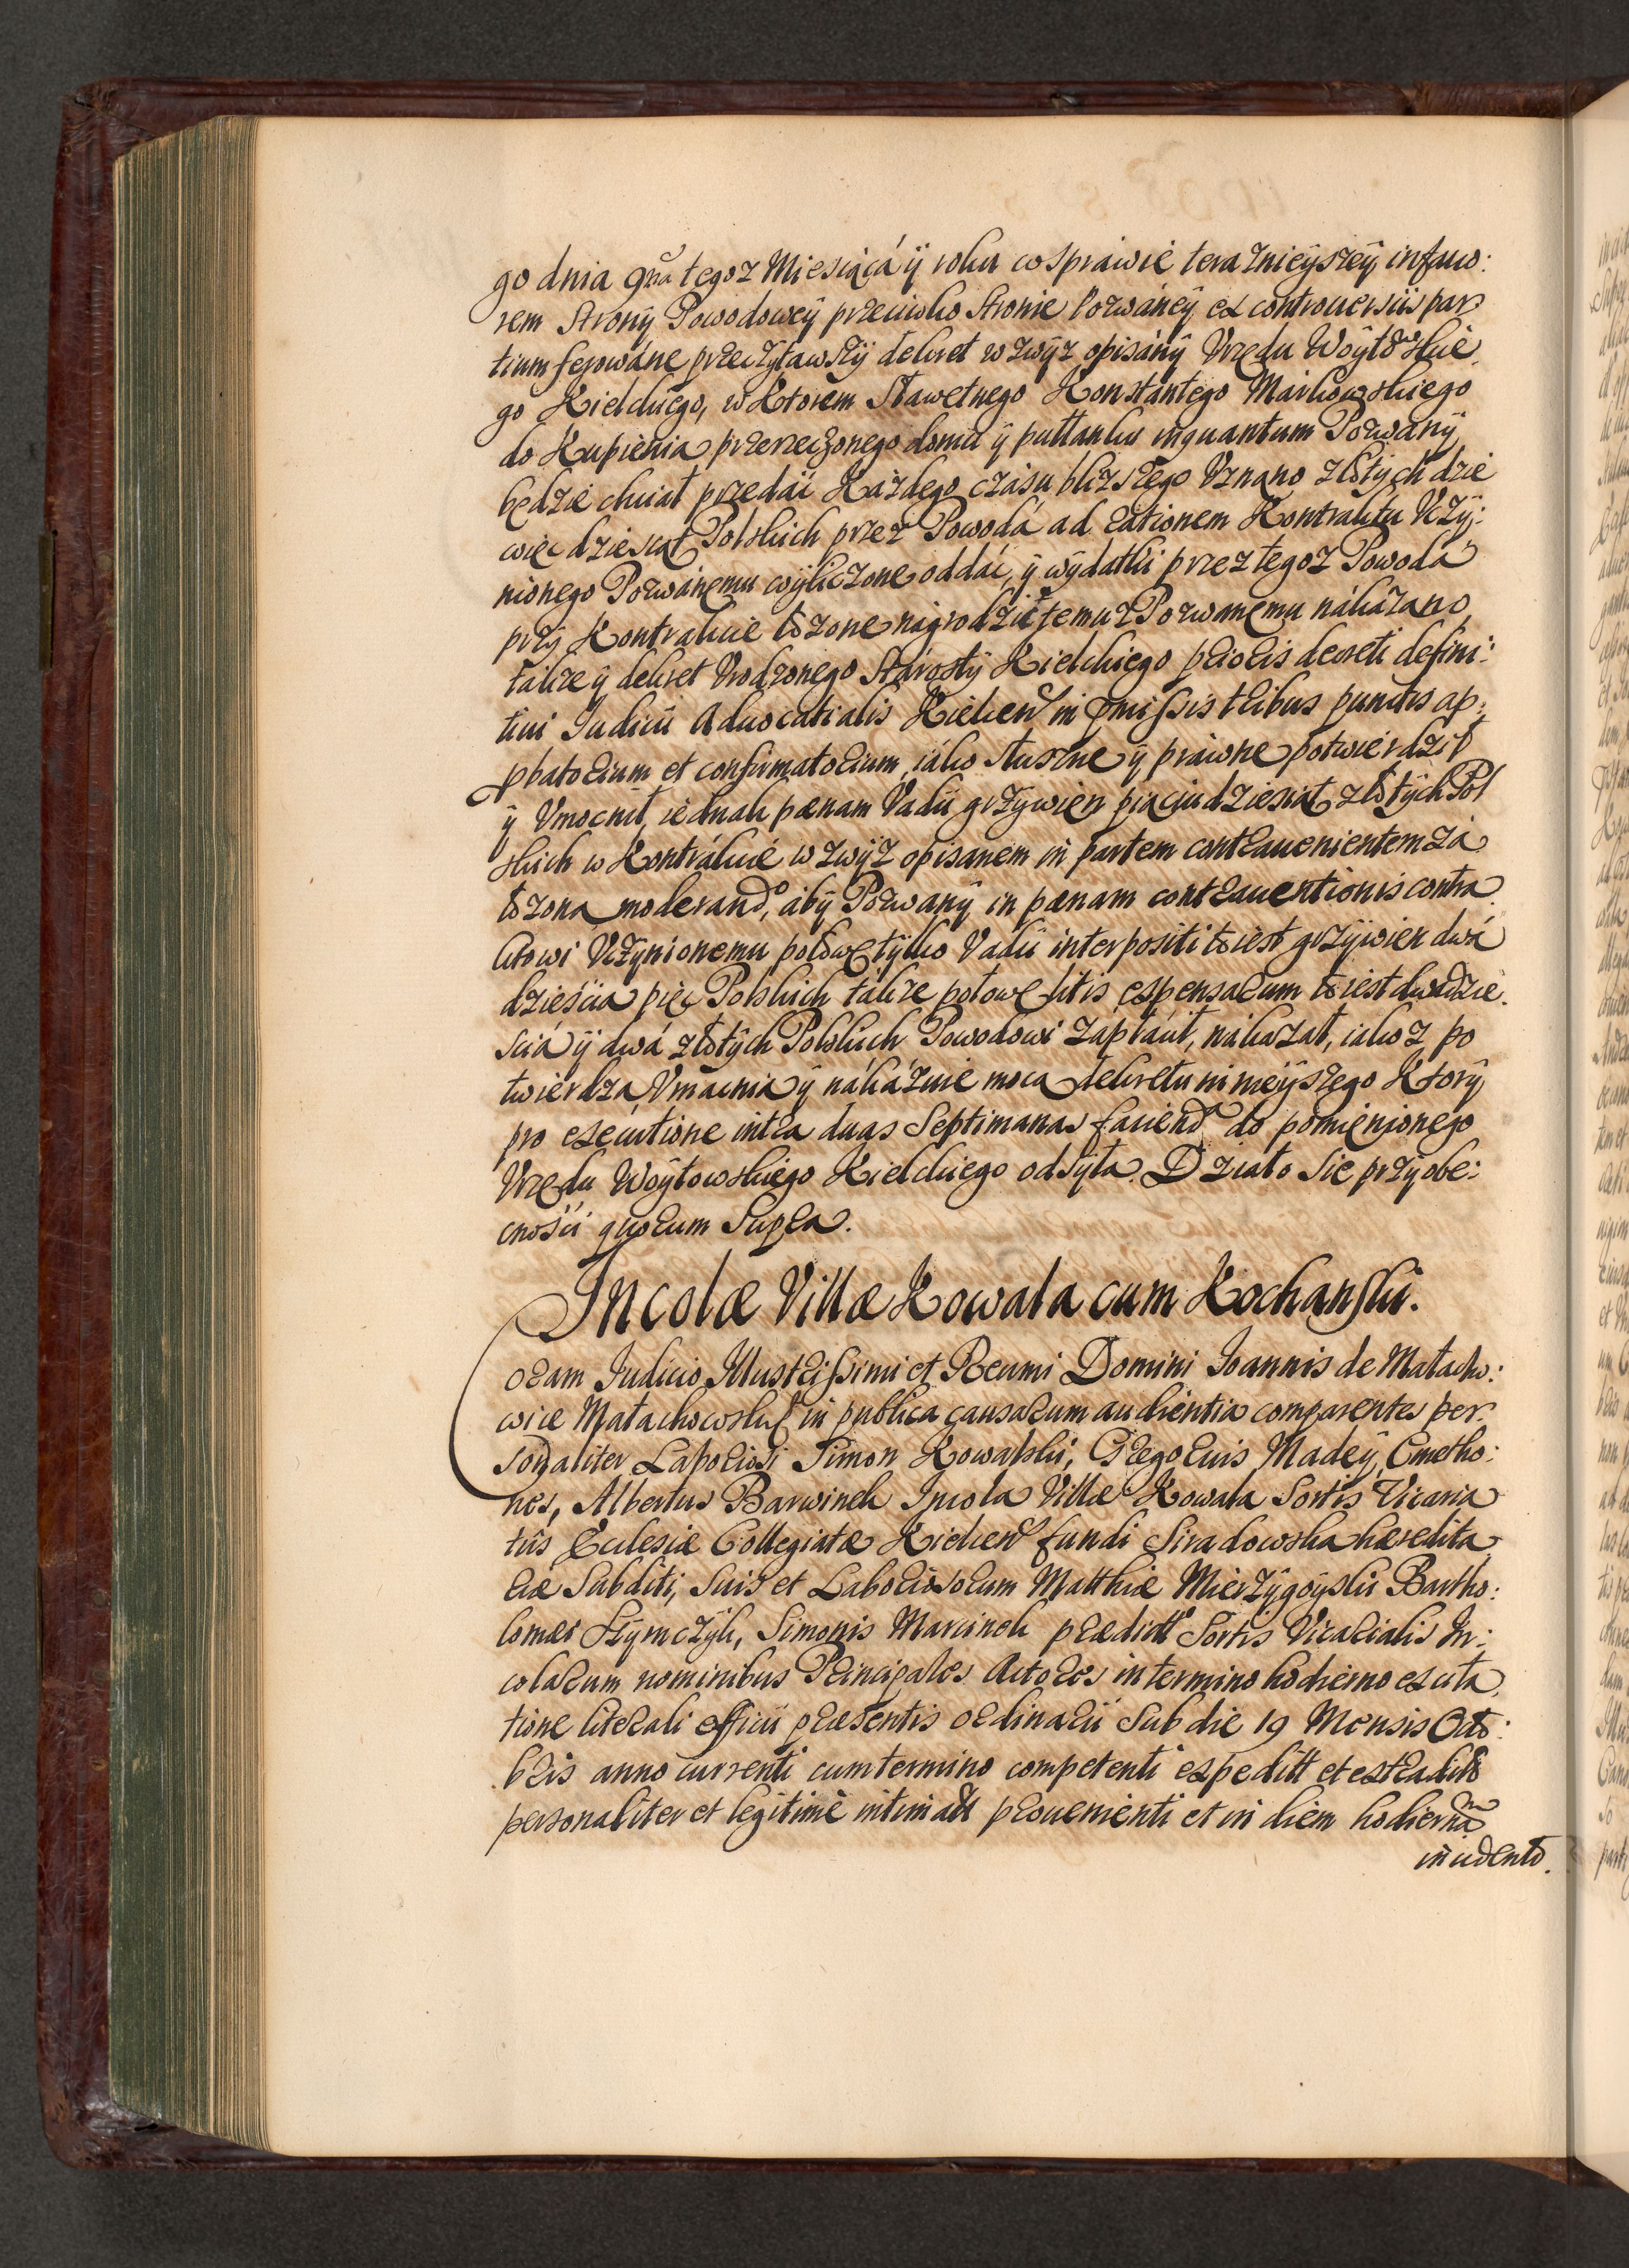 go dnia 9na tegoz Miesiąca ÿ roku w sprawie teraznieÿszeÿ in fauo:
rem Stronÿ Powodoweÿ przeciwko stronie Pozwáneÿ ex controuersiis par
tium ferowáne przeczÿtawszÿ dekret wzwÿz opisánÿ Vrzędu Woÿtowskie
go Kielckiego, w Ktorem Sławetnego Konstántego Márkowskiego
do Kupienia przerzeczonego domu ÿ puttanku inquantum Pozwánÿ
będzie chciał przedác Kazdego czásu blizszego Vznano złotÿch dzie
więcdziesiąt Polskich przez Powodá ad rationem Kontraktu Vczÿ:
nionego Pozwánemu wÿliczone oddác, ÿ wÿdatki przez tegoz Powodá
przÿ Kontrakcie łozone nágrodzic temuz Pozwanemu nákázano,
tákze ÿ dekret Vrodzonego Stárostÿ Kielckiego prioris decreti defini:
tiui Iudicii Aduocatialis Kielcen in pmissis tribus punctis ap:
pbatorium et confirmatorium, iáko słuszne ÿ práwne potwierdził
ÿ Vmocnił, iednak pænam Vadii grzÿwien pięciudziesiąt złotÿch Pol
skich w Kontrákcie wzwÿz opisanem in partem contrauenientem zá
łozoną moderando, ábÿ Pozwanÿ in pænam contrauentionis contra
ktowi Vczÿnionemu połowę tÿlko Vadii interpositi to iest grzÿwien dwá
dziescia pięc Polskich tákze połowę litis expensarum to iest dwádzie
sciá ÿ dwá złotÿch Polskich Powodowi zápłácił, nákazał, iakoz po
twierdza, Vmacnia ÿ nákázuie mocą dekretu ninieÿszego Ktorÿ
pro executione intra duas Septimanas faciend do pomienionego
Vrzędu Woÿtowskiego Kielckiego odsÿła. Działo się przÿ obe:
cnosci quorum Supra.
Incolæ Villæ Kowala cum Kochanski.
Coram Iudicio Illustrissimi et Reumi Domini Ioannis de Małacho:
wice Małachowski in publica causarum audientia comparentes per
sonaliter Laboriosi Simon Kowalski, Gregorius Madeÿ, Cmetho:
nes, Albertus Barwinek Incola Villæ Kowala Sortis Vicaria
tûs Ecclesiæ Collegiatæ Kielcen fundi Siradowska hæredita
riæ Subditi, suis et Laboriosorum Matthiæ Mierzÿgoÿski Bartho:
lomæi Szÿmczÿk, Simonis Marcinek prædicti Sortis Vicarialis In:
colarum nominibus Principales Actores in termino hodierno ex cita
tione literali officii præsentis ordinarii Sub die 19 Mensis Octo:
bris anno currenti cum termino competenti expeditt et extradito
personaliter et legitimè intimatt prouenienti et in diem hodierna
incidento.